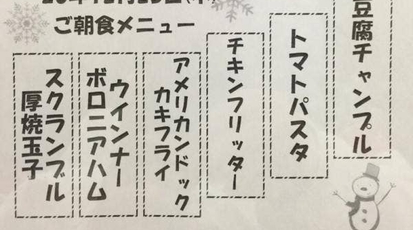 ご朝食メニュー
豆腐チャンプル
トマトパスタ
チキンフリッター
アメリカンドック
カキフライ
ウインナー
ボロニアハム
スクランブル
厚焼玉子